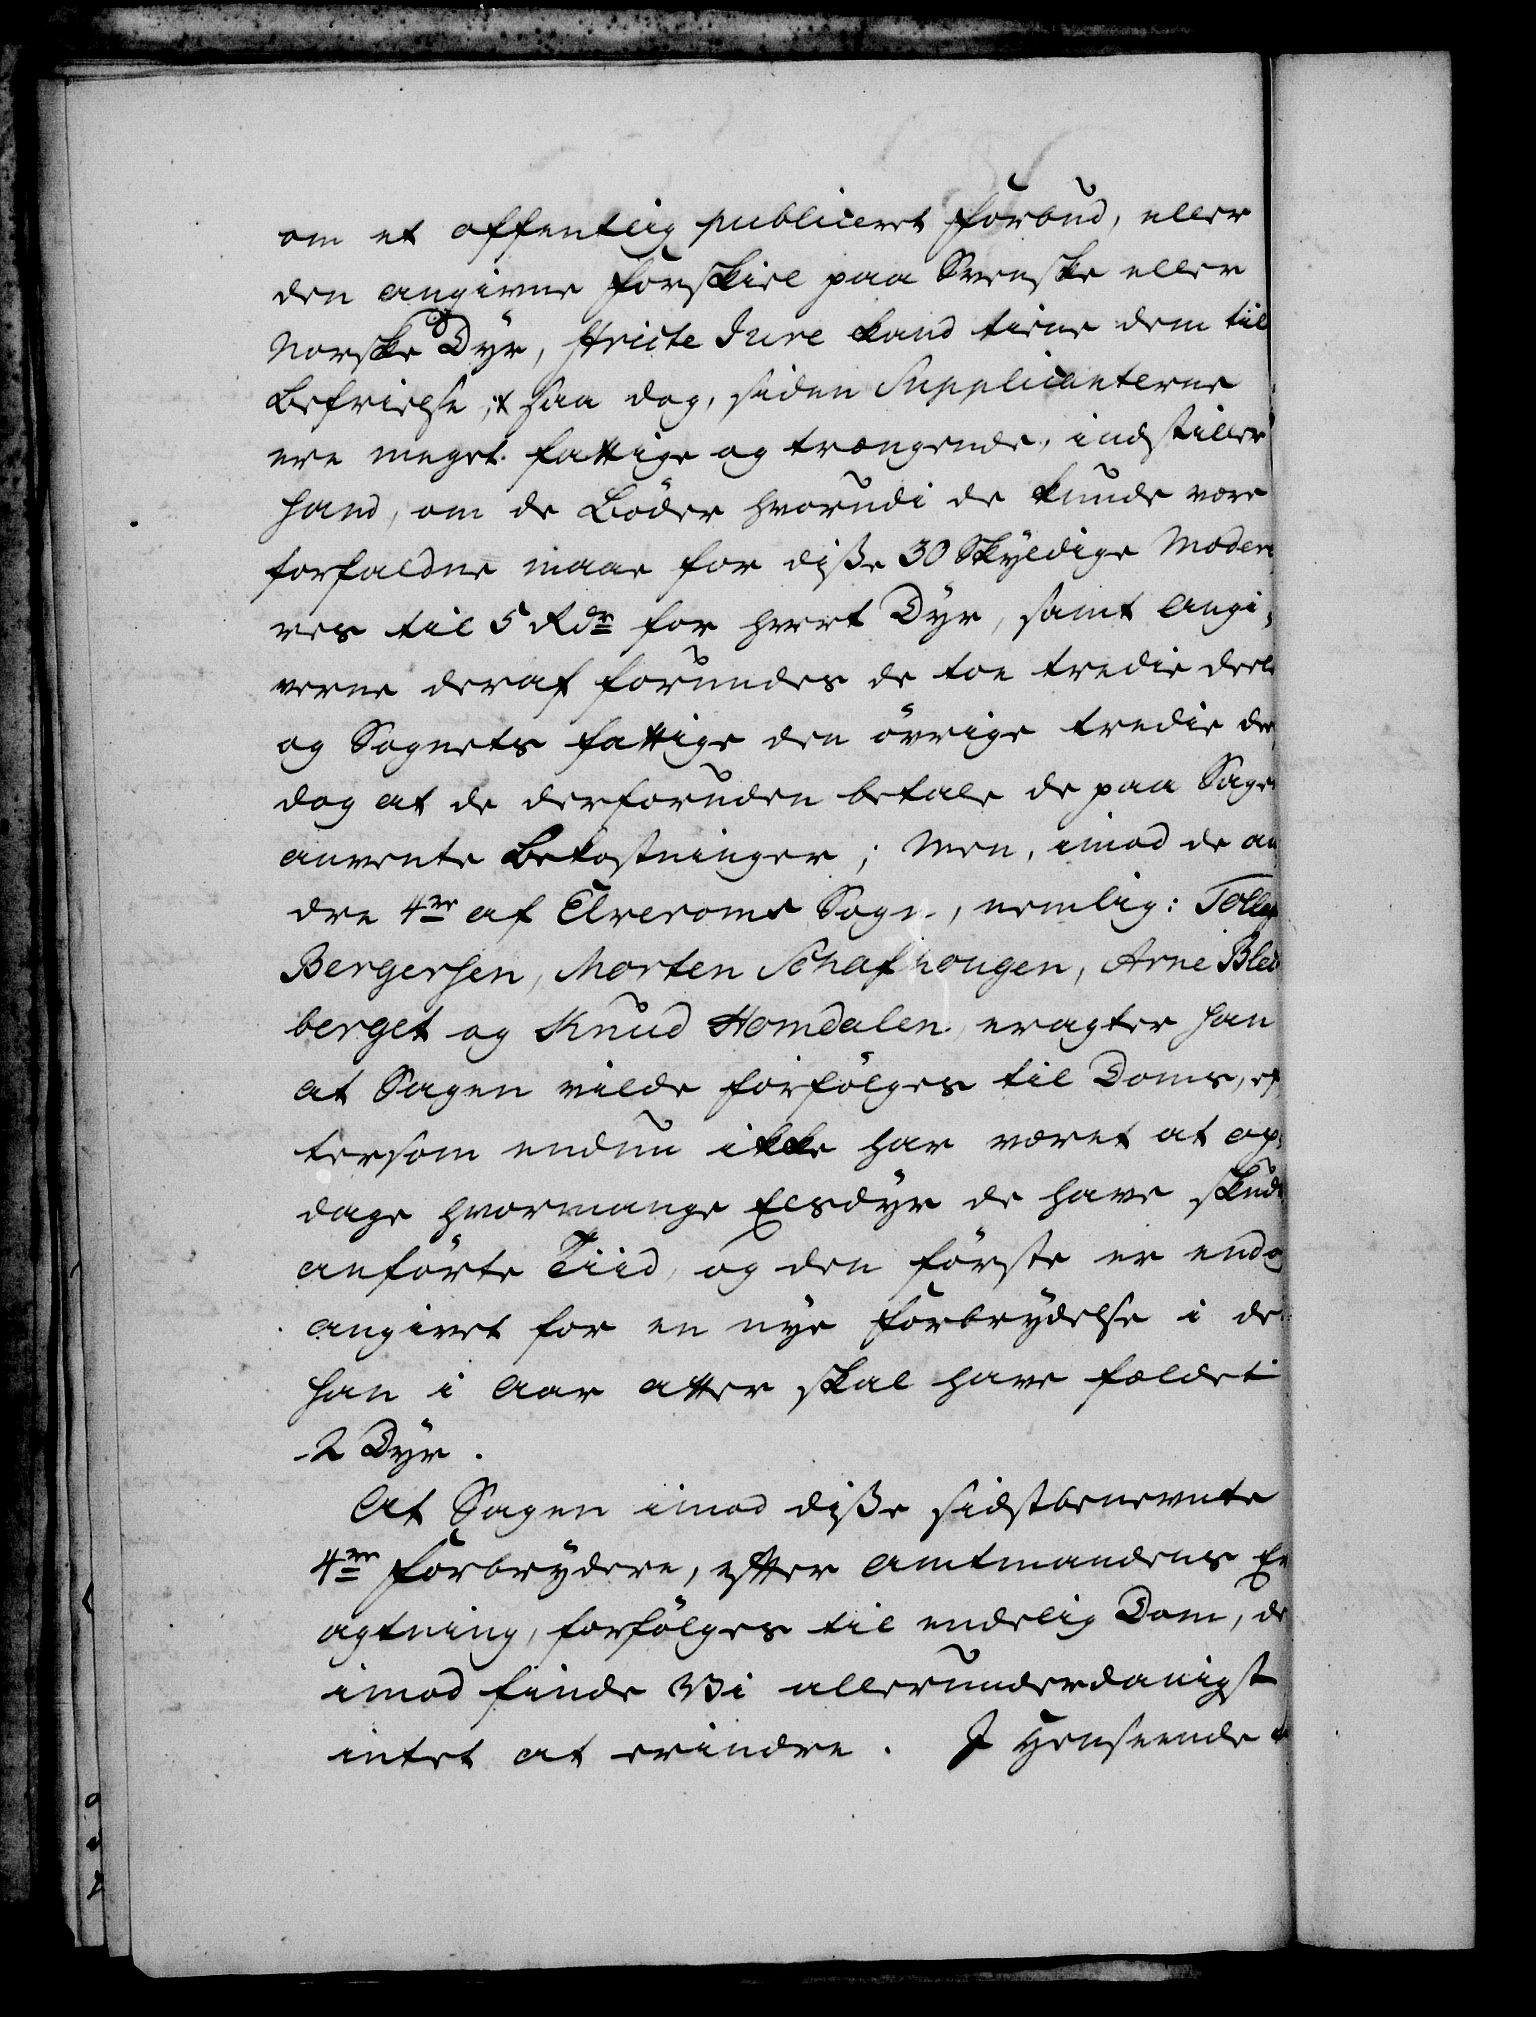 om et offentlig publiceret Forbud, eller
den angivne Forskiel paa Svenske eller
Norske Dyr, stricte Jure kand tiene dem til
Befrielse, saa dog, siden Supplicanterne
ere meget fattige og trængende, indstiller
hand, om de Bøder hvorudi de kunde være
forfaldne maae for disse 30 Skyldige Modere
res til 5 Rdr for hvert Dyr, samt Angi,
verne deraf forundes de toe tredie deele
og Sognets fattige den øvrige tredie
dog at de derforuden betale de paa Sagen
anvente Bekostninger; Men, imod de an
dre 4re af Elveroms Sogn, nemlig: Tolle
Bergersen, Morten Schafhougen, Arne Ble
berget og Knud Homdalen, eragter han
at Sagen vilde forfølges til Doms, ef
tersom endnu ikke har været at op,
dage hvormange Elsdyr de have skudt
anførte Tiid, og den første er endog
angivet for en nye Forbrydelse i de
han i Aar atter skal have fældet
2 Dyr.
At Sagen imod disse sidstbenevnte
4re Forbrydere, efter Amtmandens Er
agtning, forfølges til endelig Dom, der
imod finde Vi allerunderdanigst
intet at erindre. J Henseende